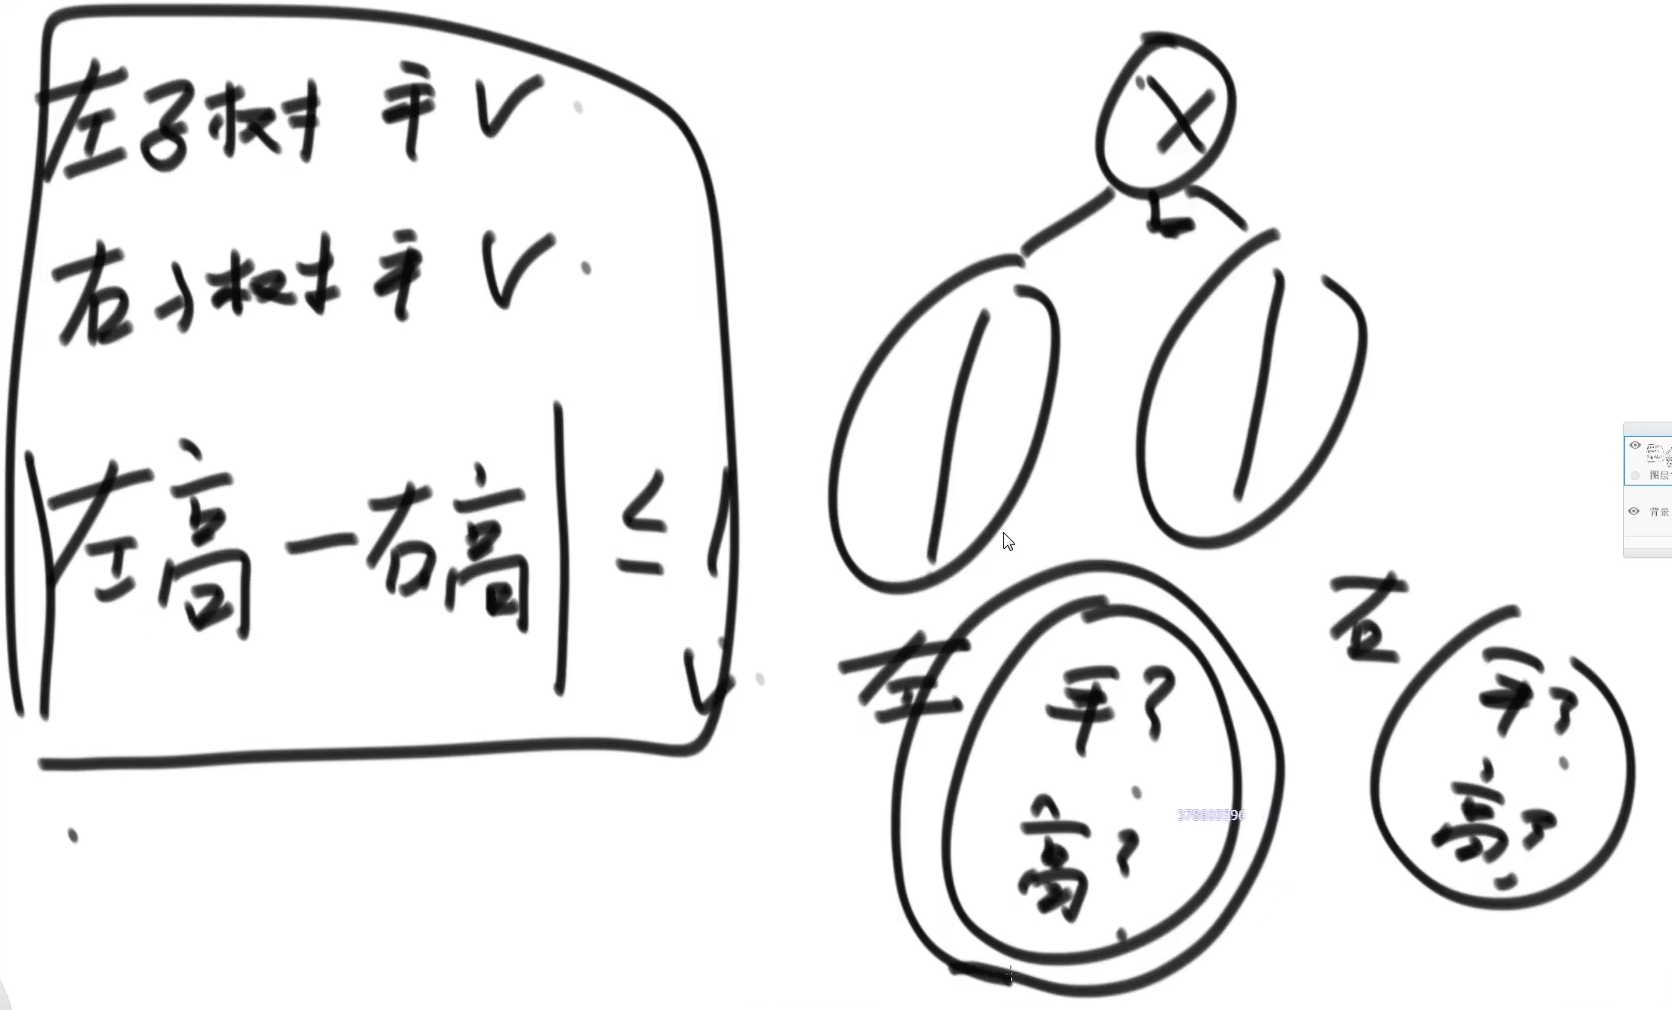 左子树 平 ✓
右子树 平 ✓
|左高 - 右高| ≤ 1
✓
X
左
平?
高?
右
平?
高?
378603396
图层
背景